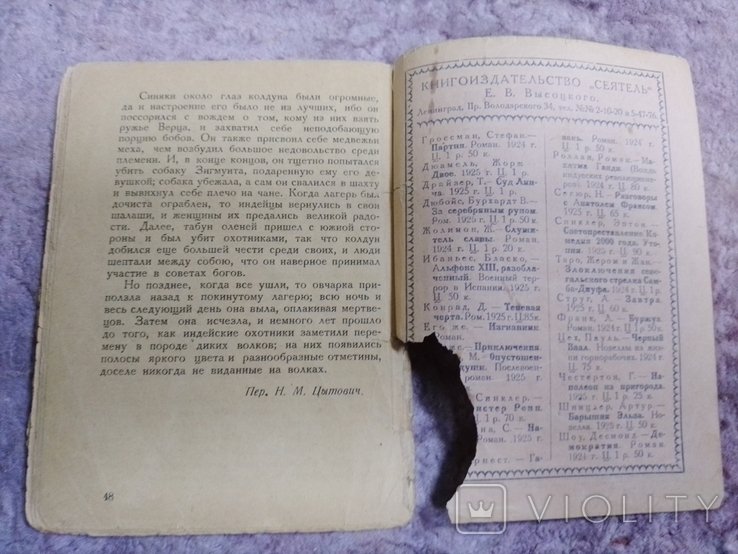 Синяки около глаз колдуна были огромные,
да и настроение его было не из лучших, ибо он
поссорился с вождем о том, кому из них взять
ружье Верца, и захватил себе неподобающую
порцию бобов. Он также присвоил себе медвежьи
меха, чем возбудил большое недовольство среди
племени. И, в конце концов, он тщетно попытался
убить собаку Зигмунта, подаренную ему его де-
вушкой; собака убежала, а сам он свалился в шахту
и вывихнул себе плечо на чане. Когда лагерь был
дочиста ограблен, то индейцы вернулись в свои
шалаши, и женщины их предались великой радо-
сти. Далее, табун оленей пришел с южной сто-
роны и был убит охотниками, так что колдун
добился еще большей чести среди своих, и люди
шептали между собою, что он наверное принимал
участие в советах богов.
Но позднее, когда все ушли, то овчарка при-
ползла назад к покинутому лагерю; всю ночь и
весь следующий день она выла, оплакивая мертве-
цов. Затем она исчезла, и немного лет прошло
до того, как индейские охотники заметили пере-
мену в породе диких волков; на них появились
полосы яркого цвета и разнообразные отметины,
доселе никогда не виданные на волках.
Пер. Н. М. Цытович.
48
КНИГОИЗДАТЕЛЬСТВО „СЕЯТЕЛЬ“
Е. В. Высоцкого.
Ленинград, Пр. Володарского 34, тел. №№ 2-10-20 и 5-47-76.
Гроссман, Стефан.—
Партия. Роман. 1924 г.
Ц. 1 р. 50 к.
Дюамель, Жорж
Двое. 1925 г. Ц. 1 р. 50 к.
Драйзер, Т.— Суд Лин-
ча. 1925 г. Ц. 1 р. 50 к.
Дюбойс, Бурхардт В.—
За серебряным руном.
Ром. 1925 г. Ц. 1 р. 50 к.
Жолимон, Ж.— Служи-
тель славы. Роман.
1924 г. Ц. 1 р. 20 к.
Ибаньес, Бласко,—
Альфонс XIII, разобла-
ченный. Военный террор
в Испании. 1925 г.
Ц. 50 к.
Конрад, Д.— Теневая
черта. Ром. 1925 г. Ц. 85 к.
Его же.— Наглания
Роман.
же.— Приключения
М.— опустошен-
души. Послевоен-
роман. 1925 г.
50 к.
Синклер.—
мистер Ропп.
Ц. 1 р. 70 к.
на, С.— На-
Роман. 1925 г.
к.
рнест.— Га-
вань. Роман. 1924 г.
Ц. 1 р. 50 к.
Роллан, Ромен.— Ма-
хатма Ганди. (Вождь
индусских революционе-
ров). 1924 г. Ц. 80 к.
Сегюр, Н.— Разговоры
с Анатолем Франсом.
1925 г. Ц. 65 к.
Синклер, Эптон.—
Светопреставление. Ко-
медия 2000 года. Уто-
пия. 1925 г. Ц. 90 к.
Таро, Жером и Жан.—
Злоключения сене-
гальского стрелка Сам-
ба-Диуфа. 1924 г. Ц. 1 р.
Струг, А.— Завтра.
1925 г. Ц. 60 к.
Франк, Л.— Буржуа.
Роман. 1924 г. Ц. 1 р. 50 к.
Цех, Пауль.— Черный
Баал. Новеллы из жизни
горнорабочих. 1924 г.
Ц. 75 к.
Честертон, Г.— На-
полеон из пригорода.
1925 г. Ц. 1 р. 25 к.
Шницлер, Артур.—
Барышня Эльза. Но-
велла. 1925 г. Ц. 50 к.
Шоу, Десмонд.— Де-
мократия. Роман.
1924 г. Ц. 1 р. 50 к.
VIOLITY